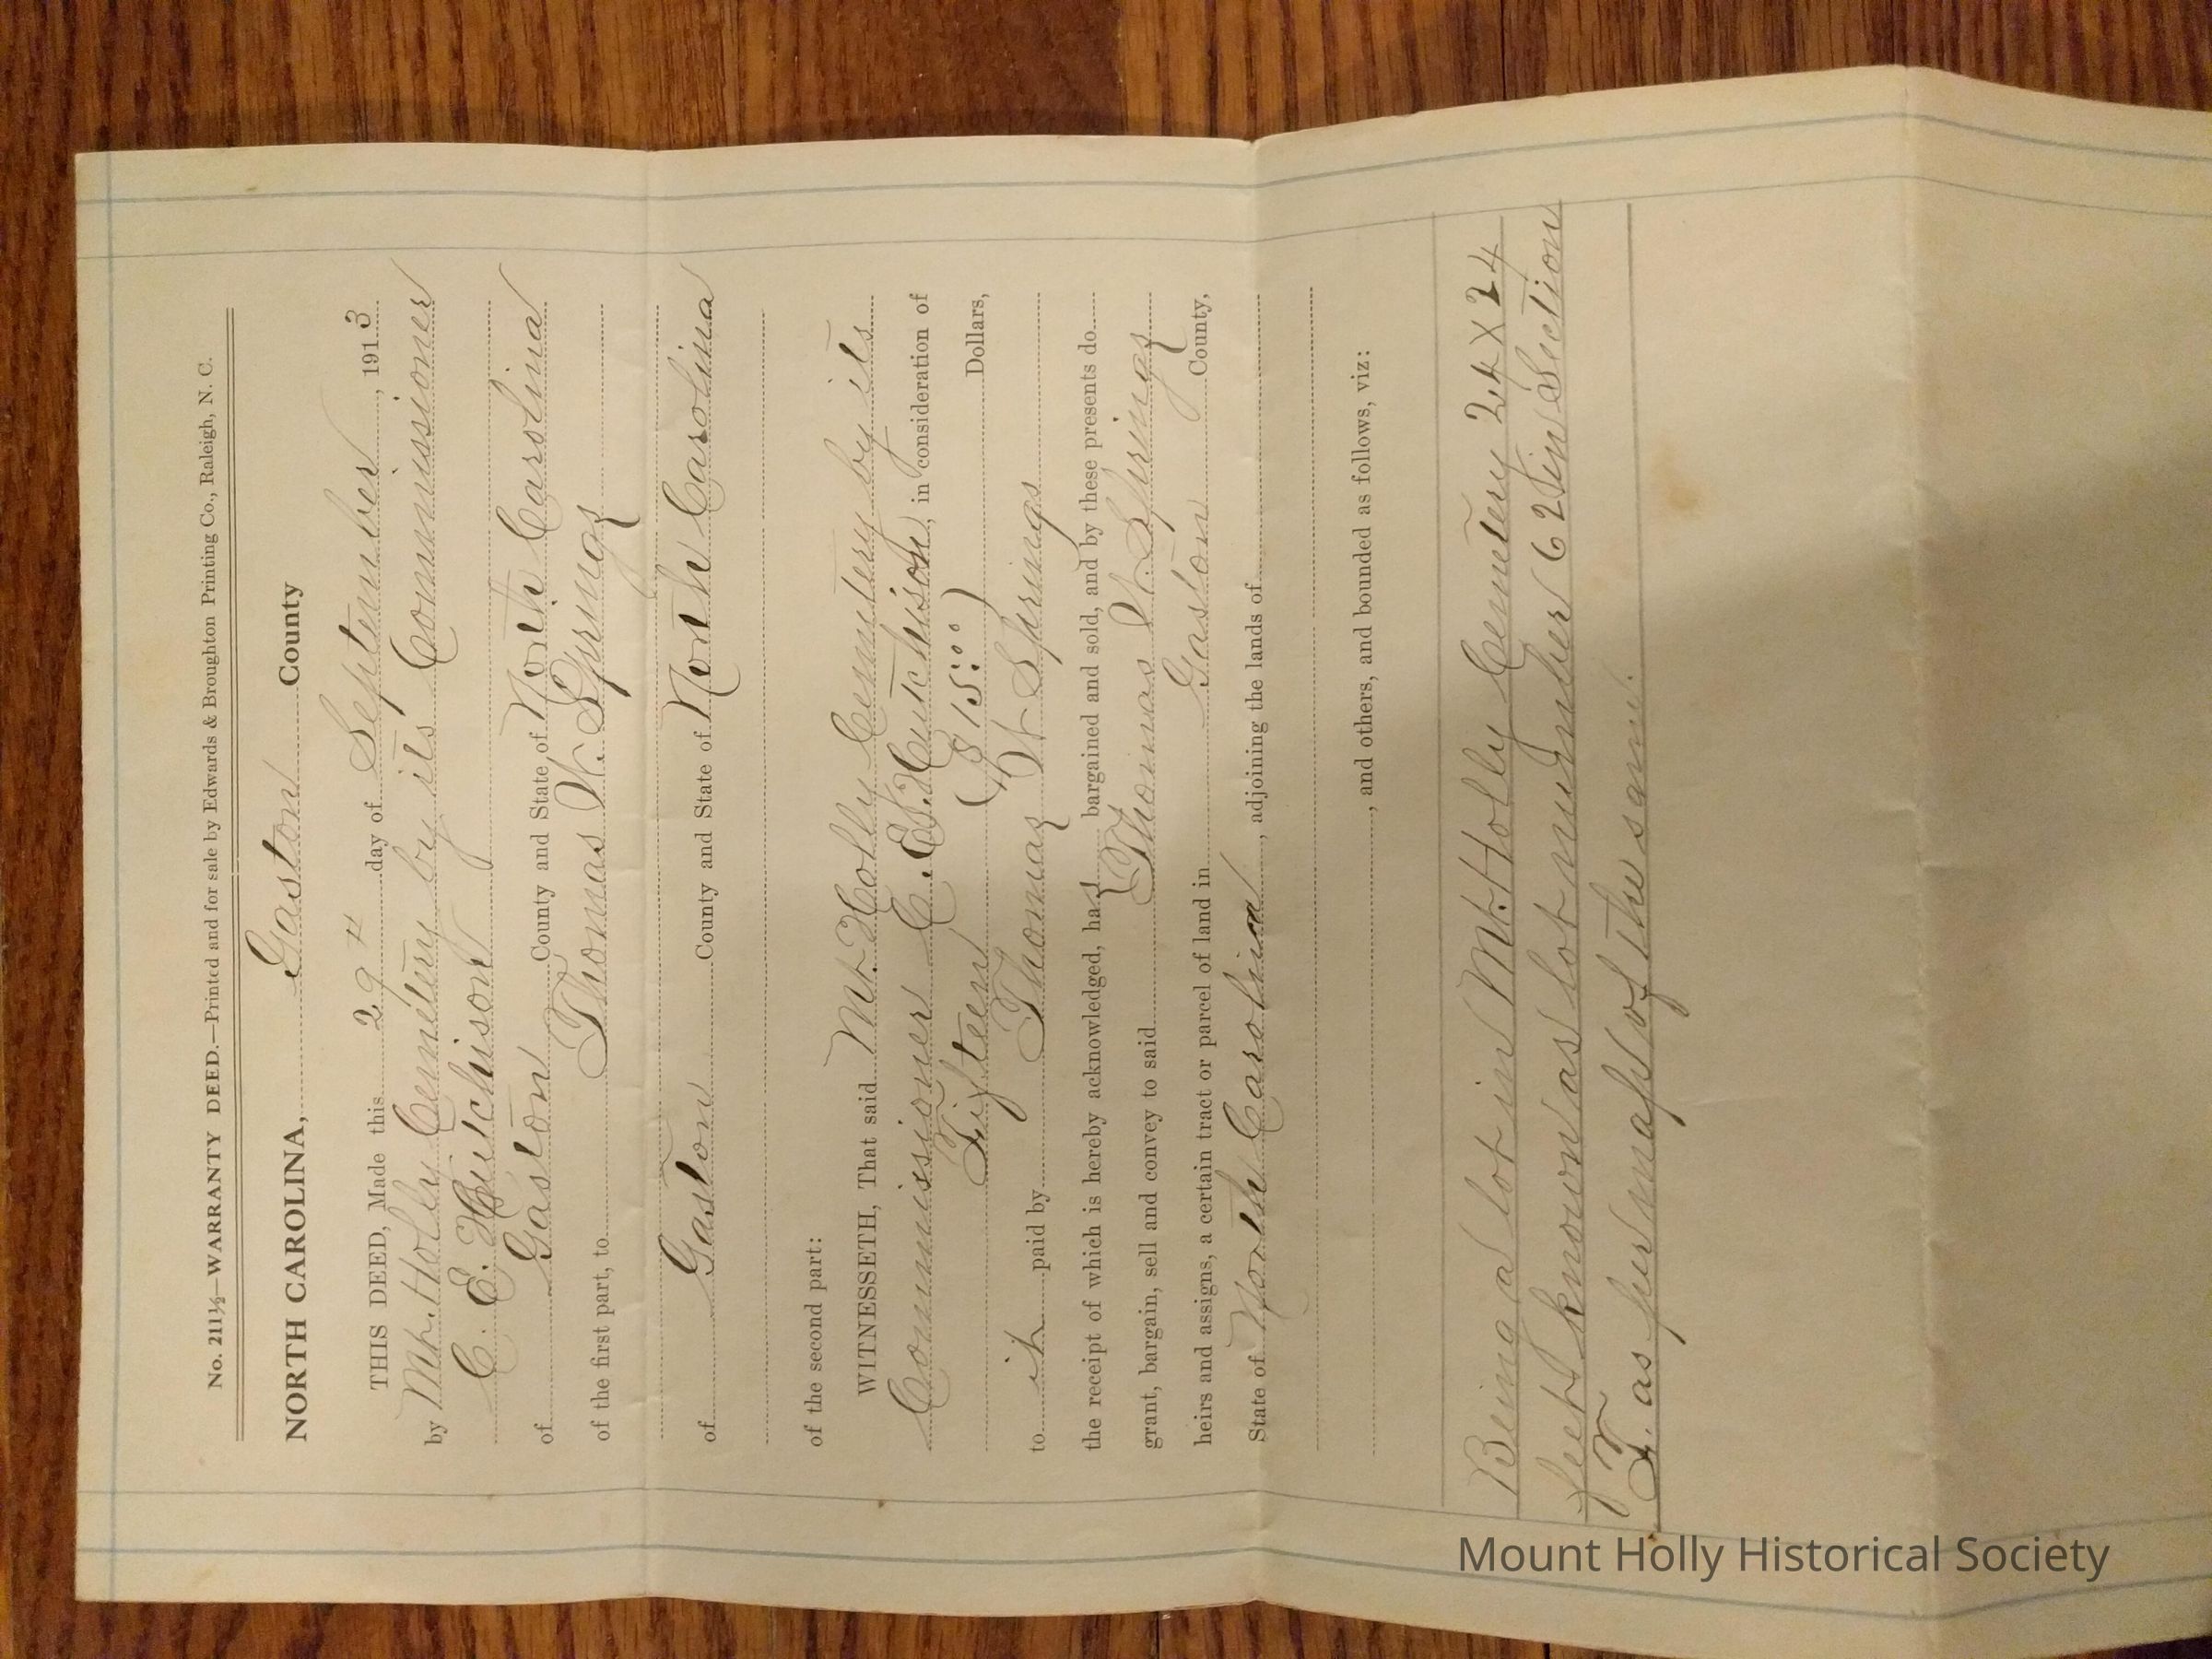 No. 211½—WARRANTY DEED.—Printed and for sale by Edwards & Broughton Printing Co., Raleigh, N. C.
NORTH CAROLINA, Gaston County
THIS DEED, Made this 29th day of September, 1913
by Mt. Holly Cemetery by its Commissioner
C. E. Hutchison
of Gaston County and State of North Carolina
of the first part, to Thomas W. Springs
of Gaston County and State of North Carolina
of the second part:
WITNESSETH, That said Mt. Holly Cemetery by its
Commissioner C. E. Hutchison, in consideration of
Fifteen ($15.00) Dollars,
to it paid by Thomas W Springs
the receipt of which is hereby acknowledged, has bargained and sold, and by these presents do
grant, bargain, sell and convey to said Thomas W. Springs
heirs and assigns, a certain tract or parcel of land in Gaston County,
State of North Carolina, adjoining the lands of
, and others, and bounded as follows, viz:
Being a lot in Mt. Holly Cemetery 24 X 24
feet known as lot number 62 in Section
F. as per map of the same.
Mount Holly Historical Society